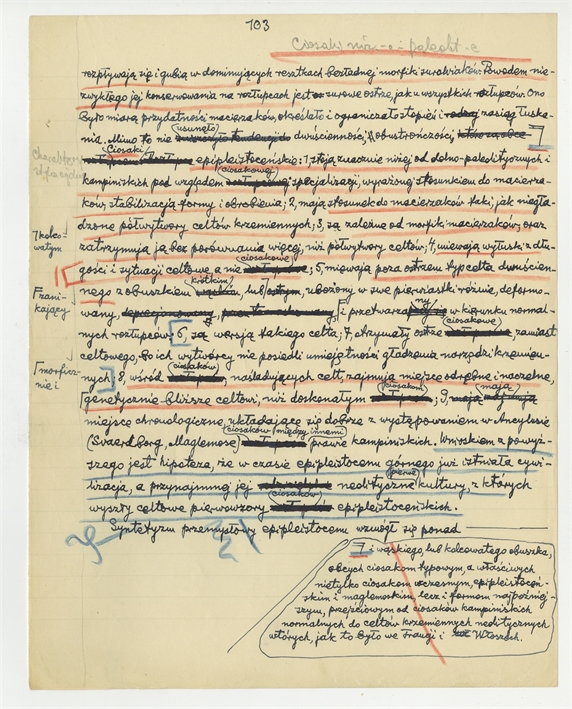 103
Ciosaki
rozpływają się i gubią w dominujących resztkach bezładnej morfiki surowiaków. Powodem nie-
zwykłego jej konserwowania na roztupcach jest surowe ostrze, jak u wszystkich roztupców. Ono
było miarą przydatności macierzaków, określało i ograniczało stopień i zasiąg łuska-
nia. Mimo to nie usunęto dwuścienności, obustronności
Ciosaki epiplejstoceńskie: 1, stoją znacznie niżej od dolno-paleolitycznych i
kampinskich pod względem ciosakowej specjalizacji, wyrażonej stosunkiem do macierza-
ków, stabilizacją formy i obrobienia; 2, mają stosunek do macierzaków taki, jak niegła-
dzone półwytwory celtów krzemiennych; 3, są zależne od morfiki macierzaków, oraz
zatrzymują ją bez porównania więcej, niż półwytwory celtów; 4, miewają wyłuski z dłu-
gości i sytuacji celtowe, a nie ciosakowe; 5, miewają poza ostrzem typ celta dwuścien-
nego z obuszkiem krótkim, lub ułożony w swe pierwiastki różnie, deformo-
wany, i przetwarzany w kierunku normal-
nych roztupców; 6, są wersją takiego celta; 7, otrzymały ostrze ciosakowe, zamiast
celtowego, bo ich wytwórcy nie posiedli umiejętności gładzenia narzędzi krzemien-
nych; 8, wśród ciosaków, naśladujących celt, zajmują miejsce odrębne i naczelne,
genetycznie bliższe celtowi, niż doskonałym ciosakom; 9, mają
miejsce chronologiczne, układające się dobrze z występowaniem w Ancylusie
(Svaerdborg, Maglemose) ciosaków między innemi prawie kampinskich. Wnioskiem z powyż-
szego jest hipoteza, że w czasie epiplejstocenu górnego już istniała cywi-
lizacja, a przynajmniej jej pierwsze neolityczne kultury, z których
wyszły celtowe pierwowzory ciosaków epiplejstoceńskich.
Syntetyzm przemysłowy epiplejstocenu wzwyż się ponad
kolco-
watym
zani-
kający
morficz-
nie i
i wąskiego, lub kolcowatego obuszka,
obcych ciosakom typowym, a właściwych
nietylko ciosakom wczesnym, epiplejstoceń-
skim i maglemoskim, lecz i formom najpóźniej-
szym, przejściowym od ciosaków kampinskich
normalnych do celtów krzemiennych neolitycznych
wtórych, jak to było we Francji i Włoszech.